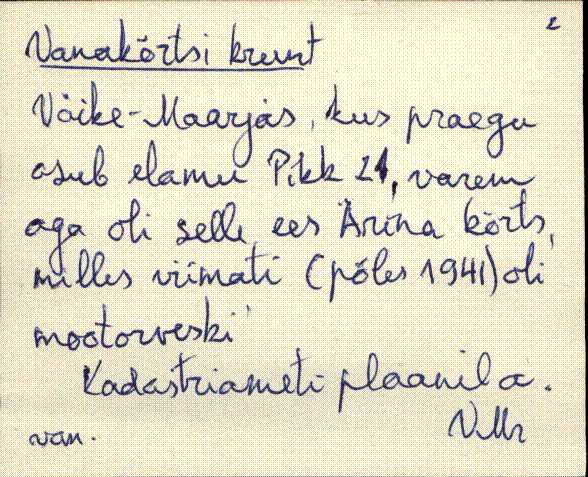 2
Vanakõrtsi krunt
Väike-Maarjas, kus praegu
asub elamu Pikk 21, varem
aga oli selle ees Ärina kõrts,
milles viimati (põles 1941) oli
mootorveski
Kadastriameti plaanil a.
van. VMr